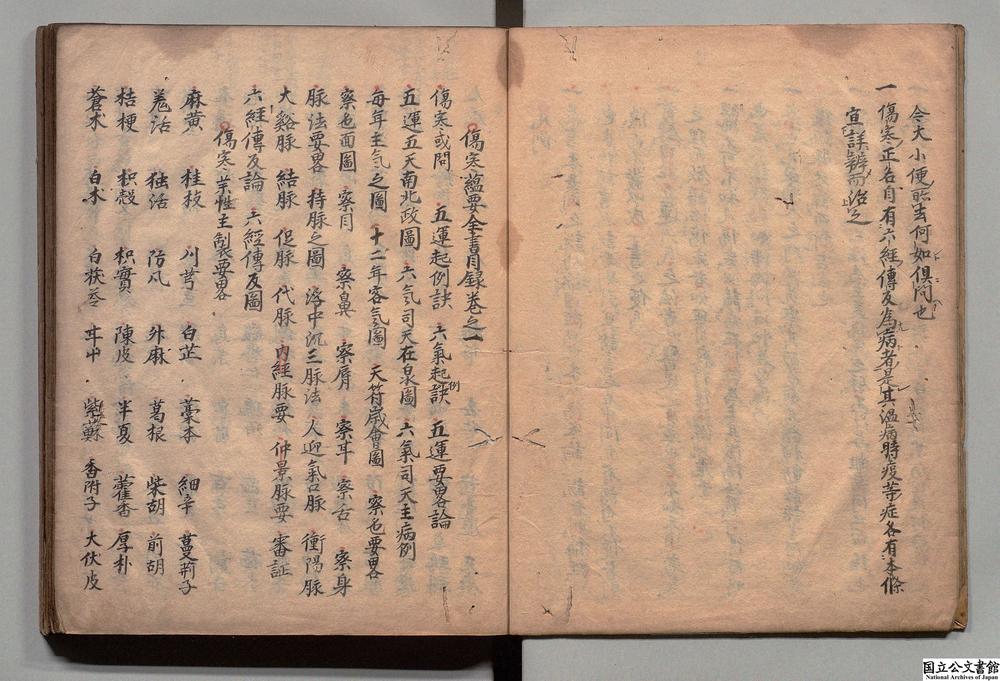 今大小便㽷去何如俱問也
一 傷寒正名自有六經傳反為病者是其溫病時疫䓁症各有本條
宜詳辨而治之
傷寒蘊要全書目録卷之一
傷寒或問 五運起例訣 六氣起例訣 五運要畧論
五運五天南北政圖 六気司天在泉圖 六氣司天主病例
每年主気之圖 十二年客気圖 天符歲會圖 察色要畧
察色面圖 察目 察鼻 察脣 察耳 察舌 察身
脉法要畧 持脉之圖 浮中沉三脉法 人迎氣口脉 衝陽脉
大谿脉 結脉 促脉 代脉 内經脉要 仲景脉要 審証
六經傳反論 六經傳反圖
傷寒藥性主制要畧
麻黃 桂枝 川芎 白芷 藁本 細辛 蔓荊子
羌活 独活 防風 升麻 葛根 柴胡 前胡
桔梗 枳殼 枳實 陳皮 半夏 藿香 厚朴
蒼朮 白朮 白茯苓 甘中 紫蘇 香附子 大伏皮
国立公文書館
National Archives of Japan